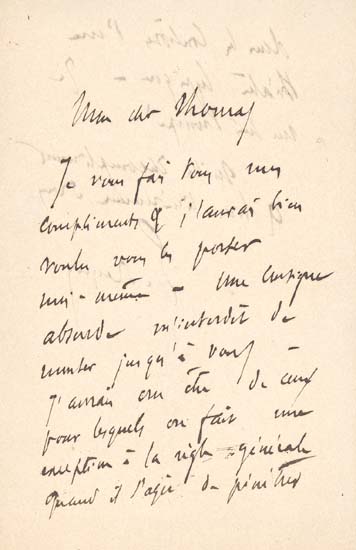 Mon cher Thomas
Je vous fais tous mes
compliments & j'aurais bien
voulu vous les porter
moi-même – Une consigne
absurde m'interdit de
monter jusqu'à vous –
J'aurais cru être de ceux
pour lesquels on fait une
exception à la règle générale
quand il s'agit de pénétrer